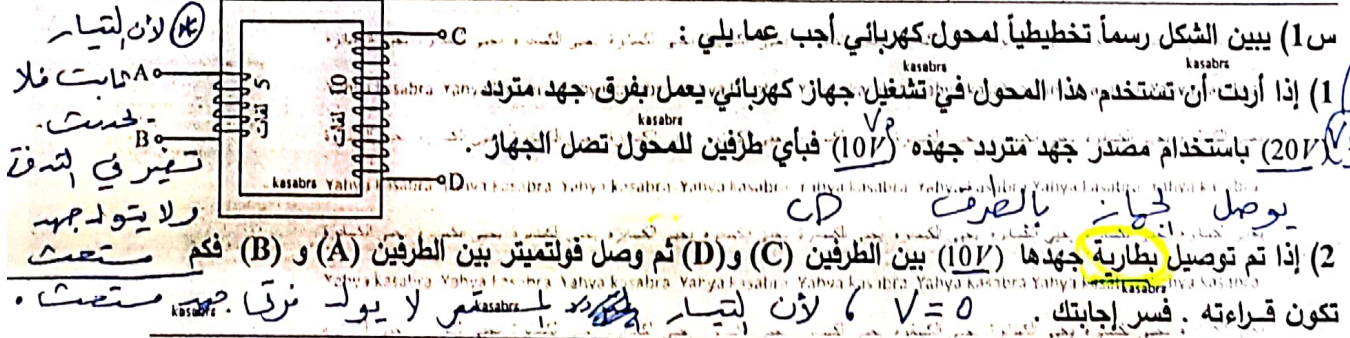 س1) يبين الشكل رسماً تخطيطياً لمحول كهربائي أجب عما يلي :
1) إذا أردت أن تستخدم هذا المحول في تشغيل جهاز كهربائي يعمل بفرق جهد متردد
(20V) باستخدام مصدر جهد متردد جهده (10V) فبأي طرفين للمحول تصل الجهاز .
يوصل الجهاز بالطرف CD
2) إذا تم توصيل بطارية جهدها (10V) بين الطرفين (C) و(D) ثم وصل فولتميتر بين الطرفين (A) و (B) فكم
تكون قراءته . فسر إجابتك . V = 0 ، لأن التيار المستمر لا يولد فرق جهد مستحث .
A
B
C
D
5 لفات
10 لفات
لأن التيار
ثابت فلا
يحدث
تغير في التدفق
ولا يتولد جهد
مستحث
kasabra